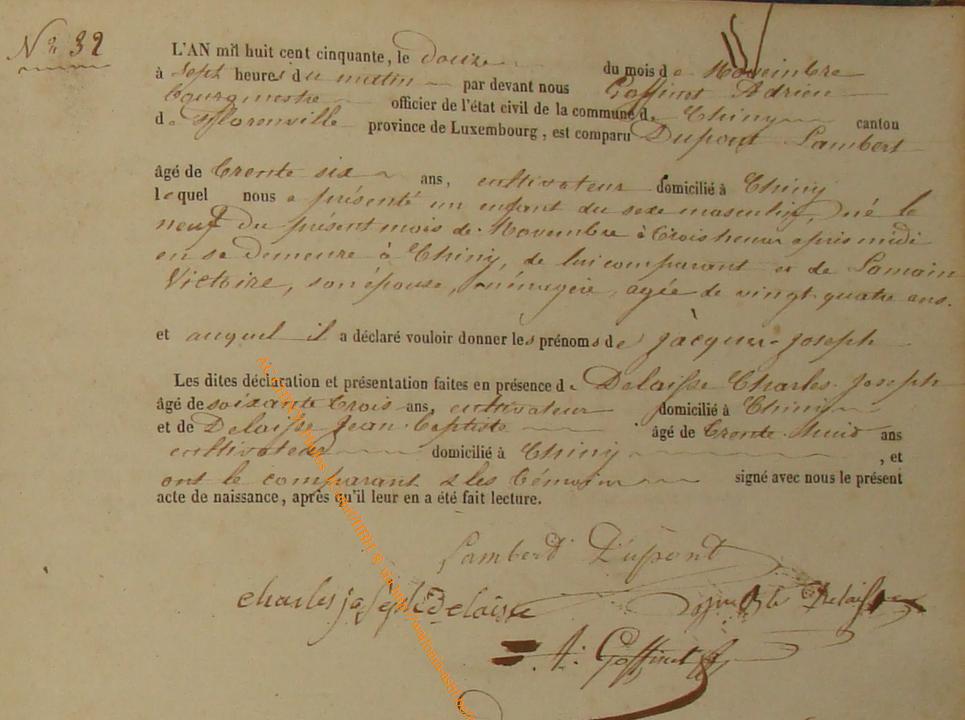 N° 32
L'AN mil huit cent cinquante, le douze du mois de Novembre
à sept heures du matin par devant nous Goffinet Adrien
bourgmestre officier de l'état civil de la commune de Chiny canton
de Florenville province de Luxembourg, est comparu Dupont Lambert
âgé de trente six ans, cultivateur domicilié à Chiny
lequel nous a présenté un enfant du sexe masculin, né le
neuf du présent mois de Novembre à trois heures après midi
en sa demeure à Chiny, de lui comparant et de Lamain
Victoire, son épouse, ménagère, agée de vingt quatre ans.
et auquel il a déclaré vouloir donner les prénoms de Jacques-Joseph
Les dites déclaration et présentation faites en présence de Delaisse Charles-Joseph
âgé de soixante trois ans, cultivateur domicilié à Chiny
et de Delaisse Jean-Baptiste âgé de trente-huit ans
cultivateur domicilié à Chiny , et
ont le comparant & les témoins signé avec nous le présent
acte de naissance, après qu'il leur en a été fait lecture.
Lambert Dupont
charles joseph Delaisse
Delaisse
A. Goffinet